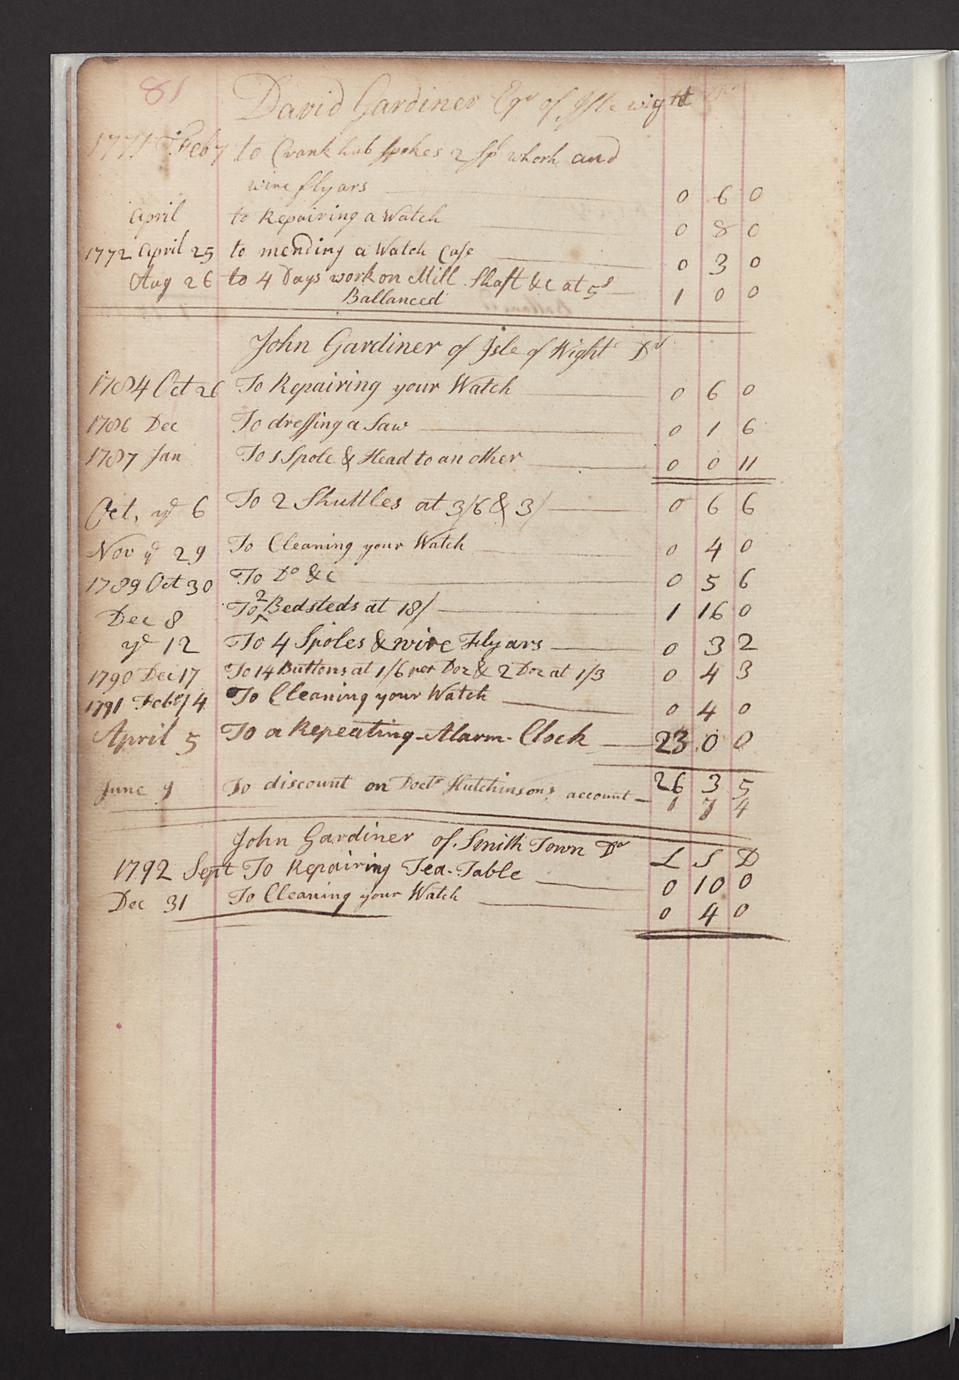 81 David Gardiner Eqr of Isle wight
1771 Feb 7 to Crank hub spokes 2 sp whorl and
wire flyars 0 6 0
April to Repairing a Watch 0 8 0
1772 April 25 to mending a Watch Case 0 3 0
Aug 26 to 4 Days work on Mill Shaft &c at 5s 1 0 0
Ballanced
John Gardiner of Isle of Wight Dr
1784 Oct 26 To Repairing your Watch 0 6 0
1786 Dec To dressing a Saw 0 1 6
1787 Jan To 1 Spole & Head to an other 0 0 11
Oct, ye 6 To 2 Shuttles at 3/6 & 3/ 0 6 6
Nov ye 29 To Cleaning your Watch 0 4 0
1789 Oct 30 To Do &c 0 5 6
Dec 8 To 2 Bedsteds at 18/ 1 16 0
ye 12 To 4 Spoles & wire Flyars 0 3 2
1790 Dec 17 To 14 Buttons at 1/6 per Doz & 2 Doz at 1/3 0 4 3
1791 Feby 4 To Cleaning your Watch 0 4 0
April 5 To a Repeating-Alarm-Clock 23 0 0
26 3 5
June 9 To discount on Doctr Hutchinsons account 1 7 4
John Gardiner of Smith Town Dr L S D
1792 Sept To Repairing Tea-Table 0 10 0
Dec 31 To Cleaning your Watch 0 4 0